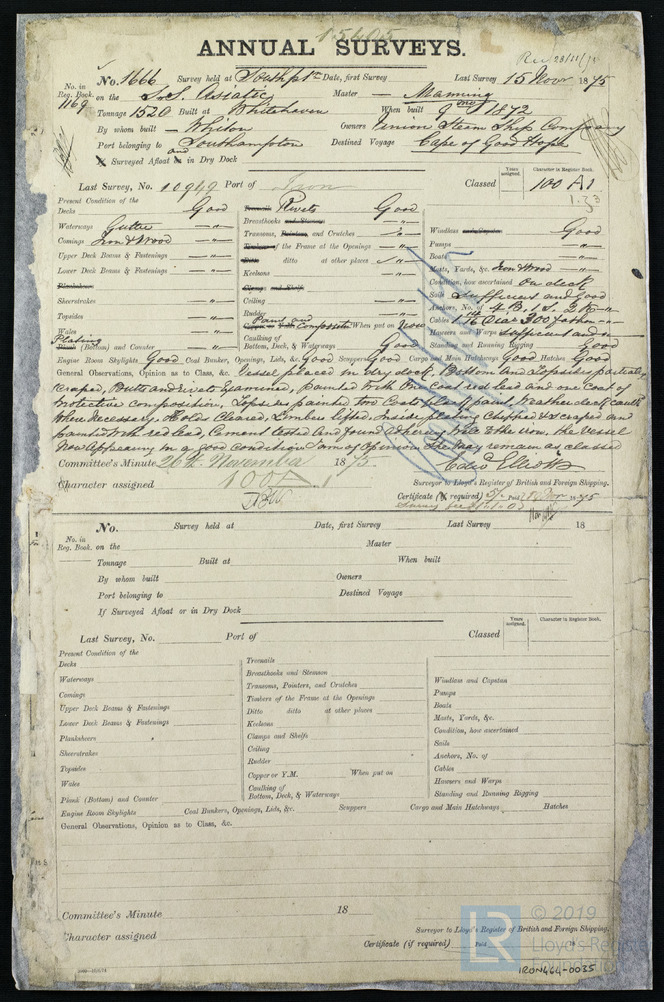 15405
ANNUAL SURVEYS.
Rec 23/11/75
No. 1666 Survey held at Southptn Date, first Survey Last Survey 15 Nov 1875
No. in Reg. Book. 1169 on the S.S. Asiatic Master — Manning
Tonnage 1520 Built at Whitehaven When built 9mo 1872
By whom built — Whiton Owners Union Steam Ship Company
Port belonging to Southampton Destined Voyage Cape of Good Hope
If Surveyed Afloat and in Dry Dock
Last Survey, No. 10949 Port of Iron Classed Years assigned. Character in Register Book. 100 A1
1.73
Present Condition of the
Decks Good Treenails Rivets Good
Waterways Gutter — " — Breasthooks and Stemson — " — Windlass and Capstan Good
Comings Iron & Wood — " — Transoms, Pointers, and Crutches — " — Pumps — " —
Upper Deck Beams & Fastenings — " — Timbers of the Frame at the Openings — " — Boats — " —
Lower Deck Beams & Fastenings — " — Ditto ditto at other places — " — Masts, Yards, &c. Iron & Wood — " —
Planksheers Keelsons — " — Condition, how ascertained on deck
Sheerstrakes — " — Clamps and Shelfs Sails Sufficient and Good
Topsides — " — Ceiling — " — Anchors, No. of 4 B. 1 S. 2 K — " —
Wales — " — Rudder — " — Cables 1 14/16 Dia = 300 fathm — " —
Plating Paint and Copper or Y.M. Composition When put on Now Hawsers and Warps Sufficient and "
Plank (Bottom) and Counter — " — Caulking of Bottom, Deck, & Waterways Good Standing and Running Rigging Good
Engine Room Skylights Good Coal Bunker, Openings, Lids, &c. Good Scuppers Good Cargo and Main Hatchways Good Hatches Good
General Observations, Opinion as to Class, &c. Vessel placed in dry dock, Bottom and Topsides partially
scraped, Butts and Rivets Examined, painted with One Coat red lead and one Coat of
protective composition, Topsides painted two Coats plain paint, Weather deck caulk'd
where necessary. Hold Cleared, Limbers lifted, Inside plating chipped & scraped and
painted with red lead, Cement tested and found adhering well to the iron, the Vessel
Now Appearing in a good condition I am of Opinion She may remain as classed
Committee's Minute 26th November 1875. Edw Elliott
Character assigned 100 A 1 Surveyor to Lloyd's Register of British and Foreign Shipping.
Certificate (if required) 5/- Paid 1875
No. Survey held at Date, first Survey Last Survey 18
No. in Reg. Book. on the Master
Tonnage Built at When built
By whom built Owners
Port belonging to Destined Voyage
If Surveyed Afloat or in Dry Dock
Last Survey, No. Port of Classed Years assigned. Character in Register Book.
Present Condition of the
Decks Treenails
Waterways Breasthooks and Stemson Windlass and Capstan
Comings Transoms, Pointers, and Crutches Pumps
Upper Deck Beams & Fastenings Timbers of the Frame at the Openings Boats
Lower Deck Beams & Fastenings Ditto ditto at other places Masts, Yards, &c.
Planksheers Keelsons Condition, how ascertained
Sheerstrakes Clamps and Shelfs Sails
Topsides Ceiling Anchors, No. of
Wales Rudder Cables
Plank (Bottom) and Counter Copper or Y.M. When put on Hawsers and Warps
Caulking of Bottom, Deck, & Waterways Standing and Running Rigging
Engine Room Skylights Coal Bunkers, Openings, Lids, &c. Scuppers Cargo and Main Hatchways Hatches
General Observations, Opinion as to Class, &c.
Committee's Minute 18
Character assigned Surveyor to Lloyd's Register of British and Foreign Shipping.
Certificate (if required) Paid
LR © 2019
Lloyd's Register
Foundation
IRON464-0035